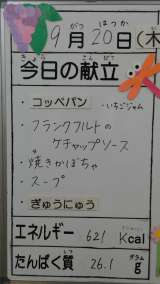 9月20日(木
がつ はつか
今日の献立
きょう こんだて
・コッペパン -いちごジャム
・フランクフルトの
ケチャップソース
・焼きかぼちゃ
・スープ
・ぎゅうにゅう
エネルギー 621 Kcal
たんぱく質 26.1 g
しつ グラム